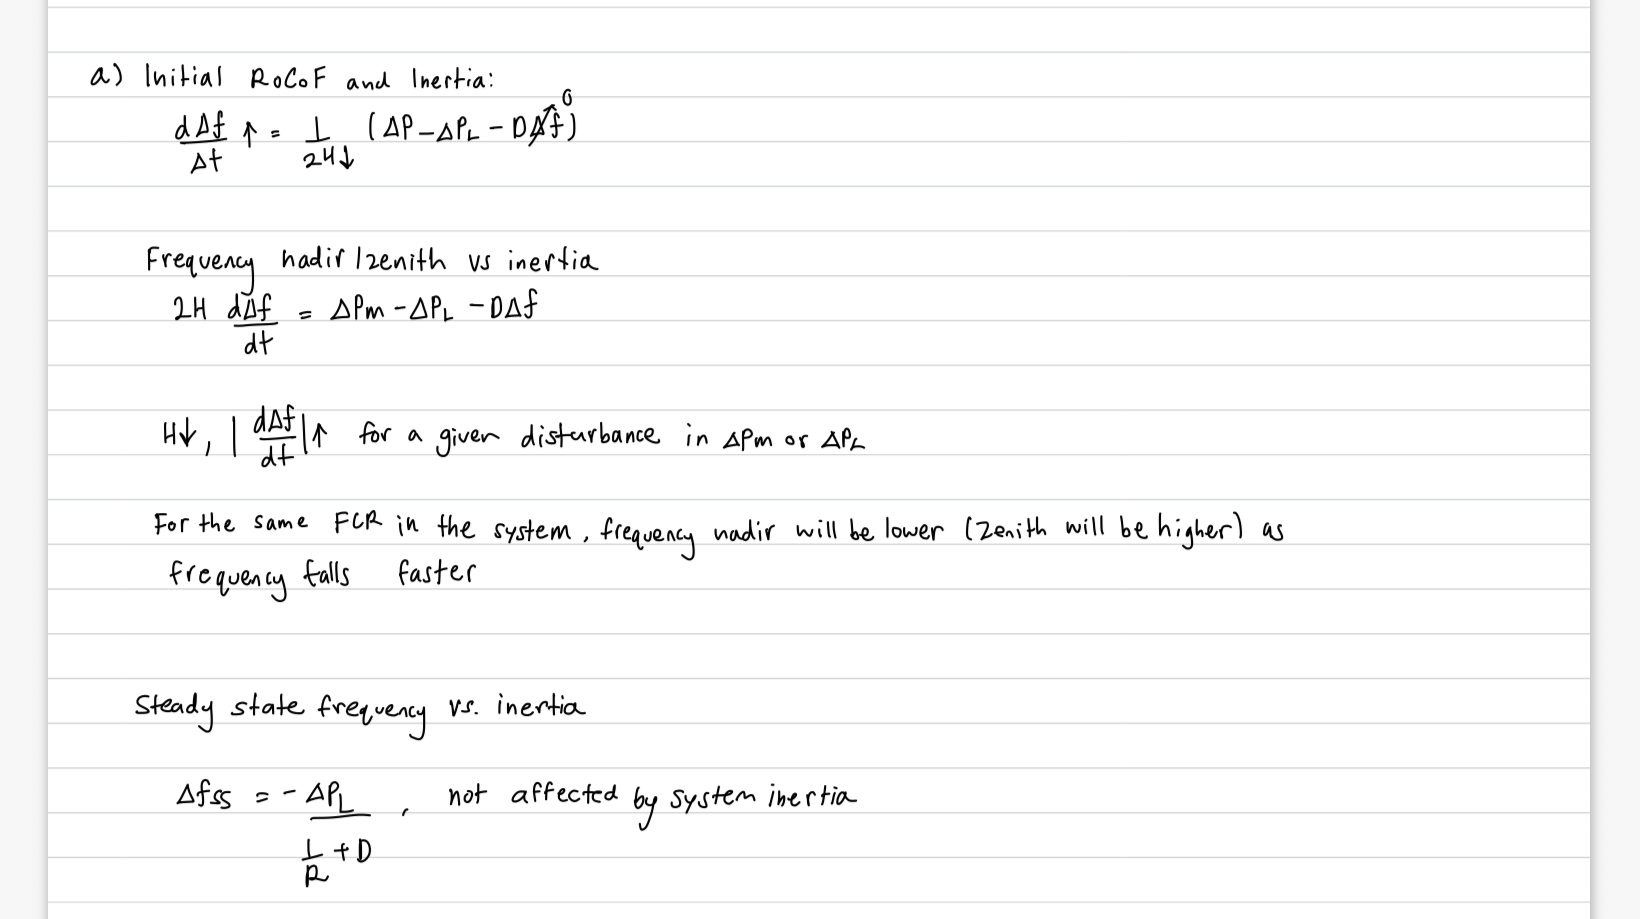 a) Initial RoCoF and Inertia:
dΔf/Δt ↑ = 1/2H↓ (ΔP - ΔPL - DΔf) 0
Frequency nadir/zenith vs inertia
2H dΔf/dt = ΔPm - ΔPL - DΔf
H↓, |dΔf/dt|↑ for a given disturbance in ΔPm or ΔPL
For the same FCR in the system, frequency nadir will be lower (zenith will be higher) as
frequency falls faster
Steady state frequency vs. inertia
Δfss = - ΔPL / (1/R + D), not affected by system inertia